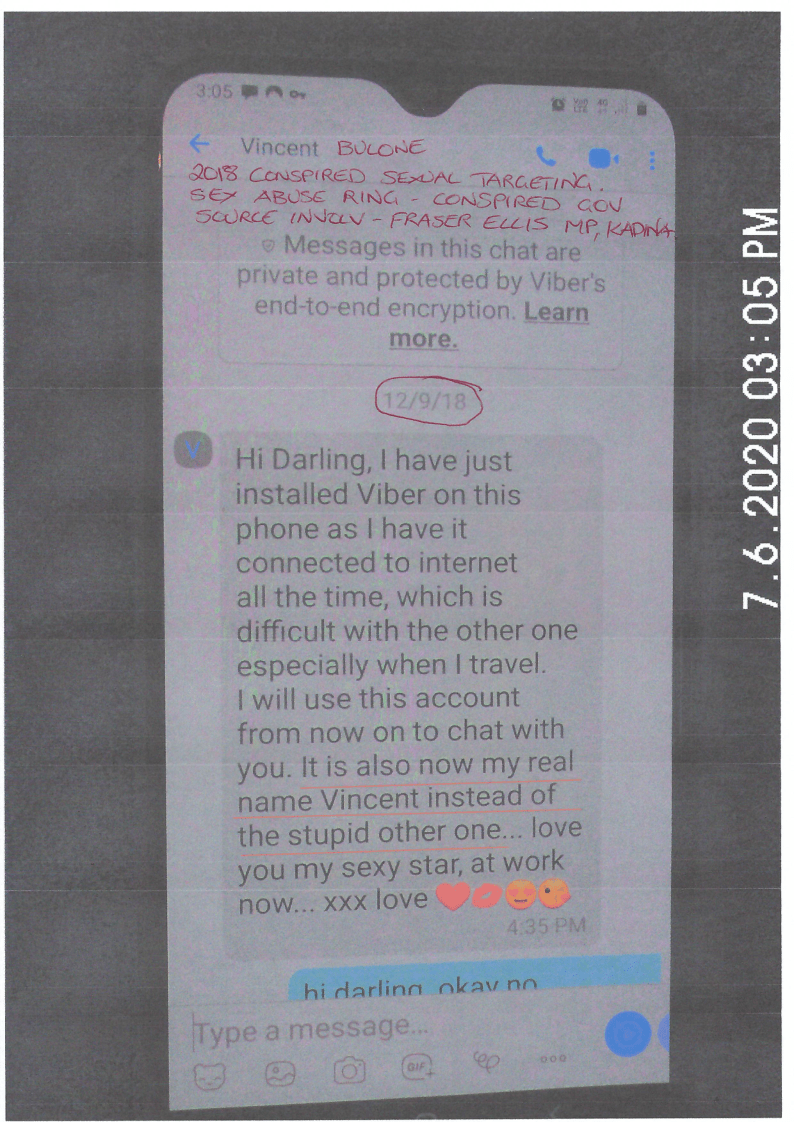 3:05
Vincent BULONE
2018 CONSPIRED SEXUAL TARGETING.
SEX ABUSE RING - CONSPIRED GOV
SOURCE INVOLV - FRASER ELLIS MP, KADINA
Messages in this chat are
private and protected by Viber's
end-to-end encryption. Learn
more.
12/9/18
V
Hi Darling, I have just
installed Viber on this
phone as I have it
connected to internet
all the time, which is
difficult with the other one
especially when I travel.
I will use this account
from now on to chat with
you. It is also now my real
name Vincent instead of
the stupid other one... love
you my sexy star, at work
now... xxx love ❤️💋😍😘
4:35 PM
hi darling, okay no
Type a message...
GIF
7.6.2020 03:05 PM